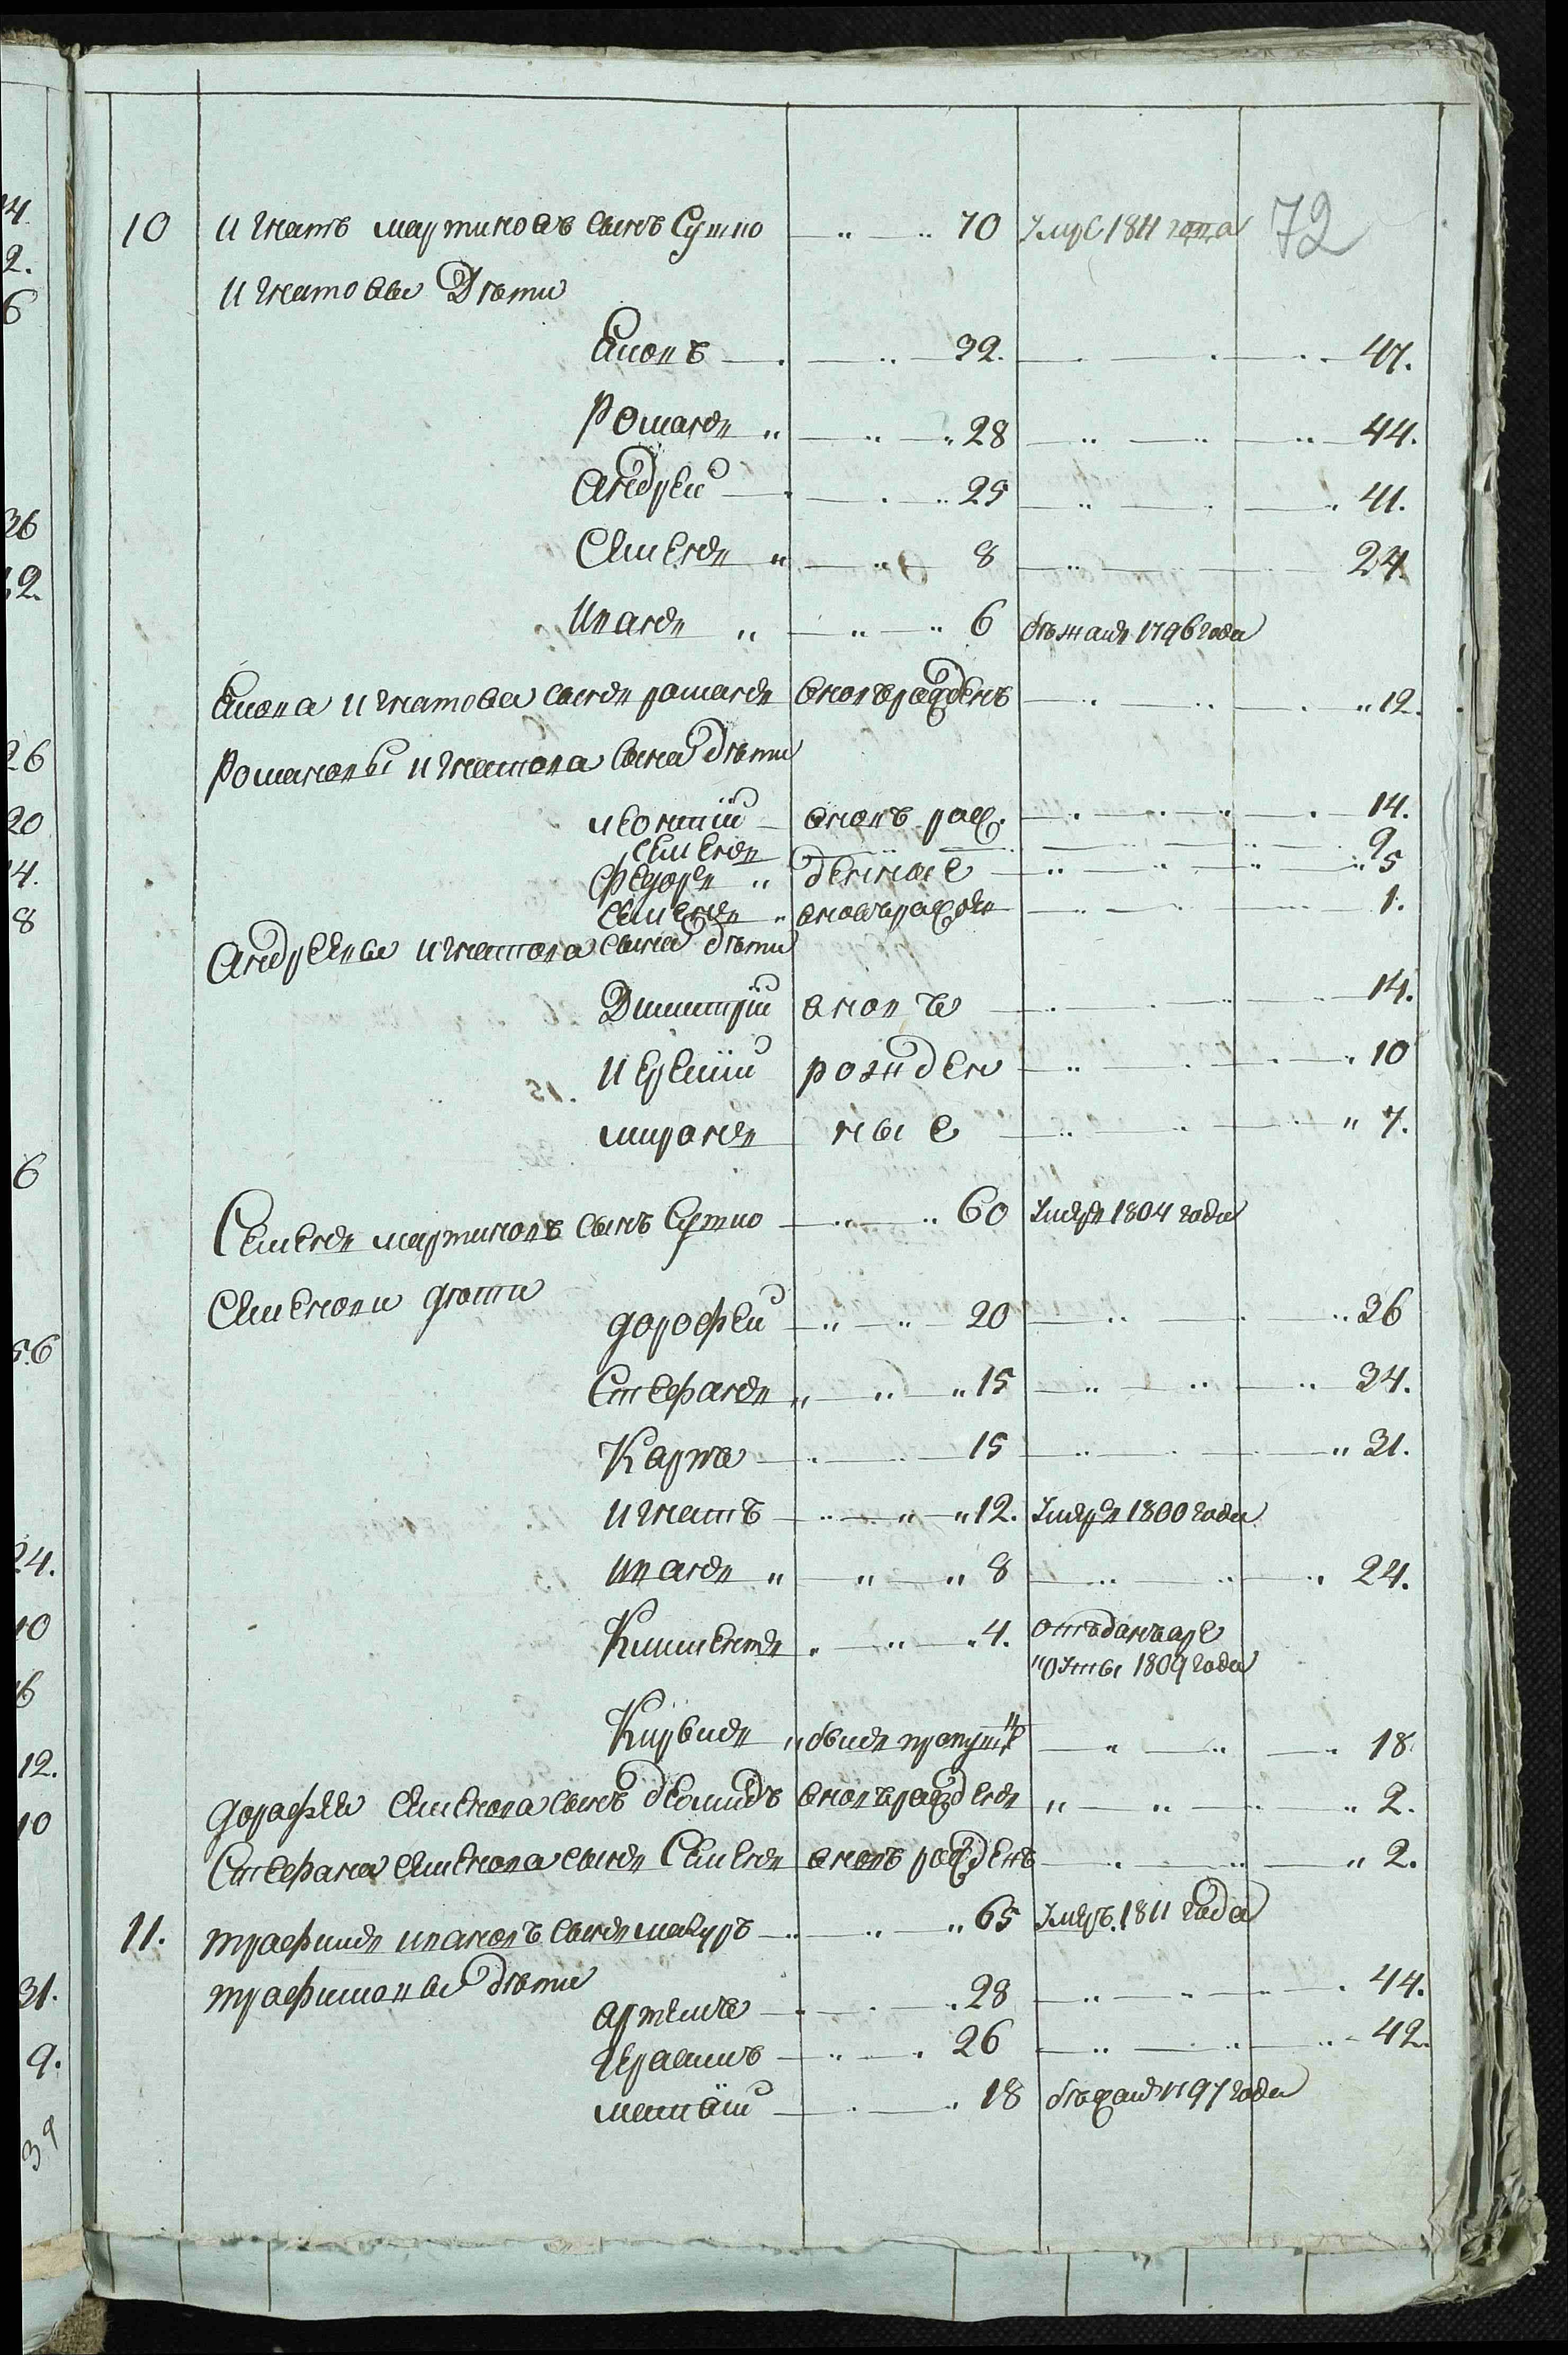 72
10 Игнатъ мартиновъ сынъ Сушко 70 Умре 1811 года
Игнатовы Дѣти
Яковъ 32. 47.
Романъ 28 44.
Андрей 25 41.
Семенъ 8 24.
Иванъ 6 бѣжалъ 1796 года
Якова Игнатова сынъ романъ вновърожденъ 12.
Романовы Игнатова сына дѣти
леонтій вновъ рож. 14.
Семенъ 9
Федоръ денные 5
Семенъ вновърожден 1.
Андреевы Игнатова сына дѣти
Димитрій вновъ 14.
Иеремій рожден 10
миронъ ные 7.
Семенъ мартиновъ сынъ Сушко 60 Умеръ 1804 года
Семенови дѣти
дорофей 20 36
Стефанъ 15 34.
Карпъ 15 31.
Игнатъ 12. Умеръ 1800 года
Иванъ 8 24.
Климентъ 4. отъданъвъре
круты 1809 года
Кирилъ былъ пропущ 18
дорофея Семенова сынъ демидъ вновърожденъ 2.
Стефана Семенова сынъ Семенъ вновъ рожденъ 2.
11. трофимъ ивановъ сынъ 65 Умеръ. 1811 года
трофимовы дѣти
артемъ 28 44.
герасимъ 26 42.
матвій 18 бѣжалъ 1797 года
4.
2.
6
36
2.
26
20
4.
8
6
56
24.
10
6
12.
10
31.
9.
39